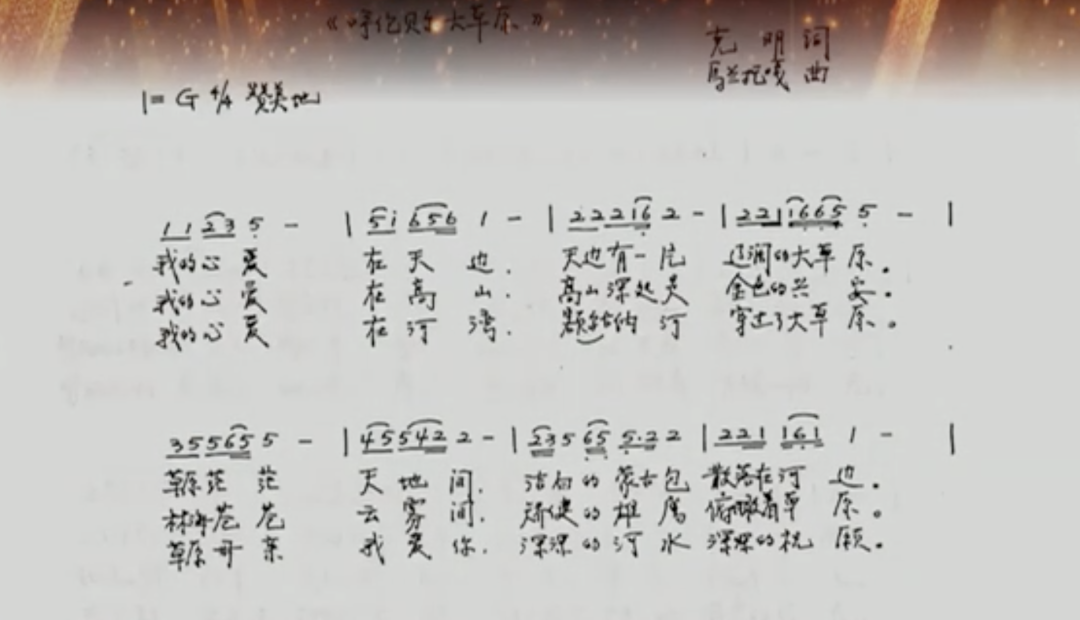 《呼伦贝尔大草原》
克明 词
乌兰托嘎 曲
1=G 4/4 赞美地
1 1 2 3 5 - | 5 i 6 5 6 1 - | 2 2 2 1 6 2 - | 2 2 1 1 6 6 5 5 - |
我的心爱 在天边. 天边有一片 辽阔的大草原。
我的心爱 在高山. 高山深处是 金色的兴安。
我的心爱 在河湾. 额尔古纳河 穿过了大草原。
3 5 5 6 5 5 - | 4 5 5 4 2 2 - | 2 3 5 6 5 5·2 2 | 2 2 1 1 6 1 1 - |
草原茫茫 天地间. 洁白的蒙古包 散落在河边。
林海苍苍 云雾间. 矫健的雄鹰 俯瞰着草原。
草原母亲 我爱你. 深深的河水 深深的祝愿。